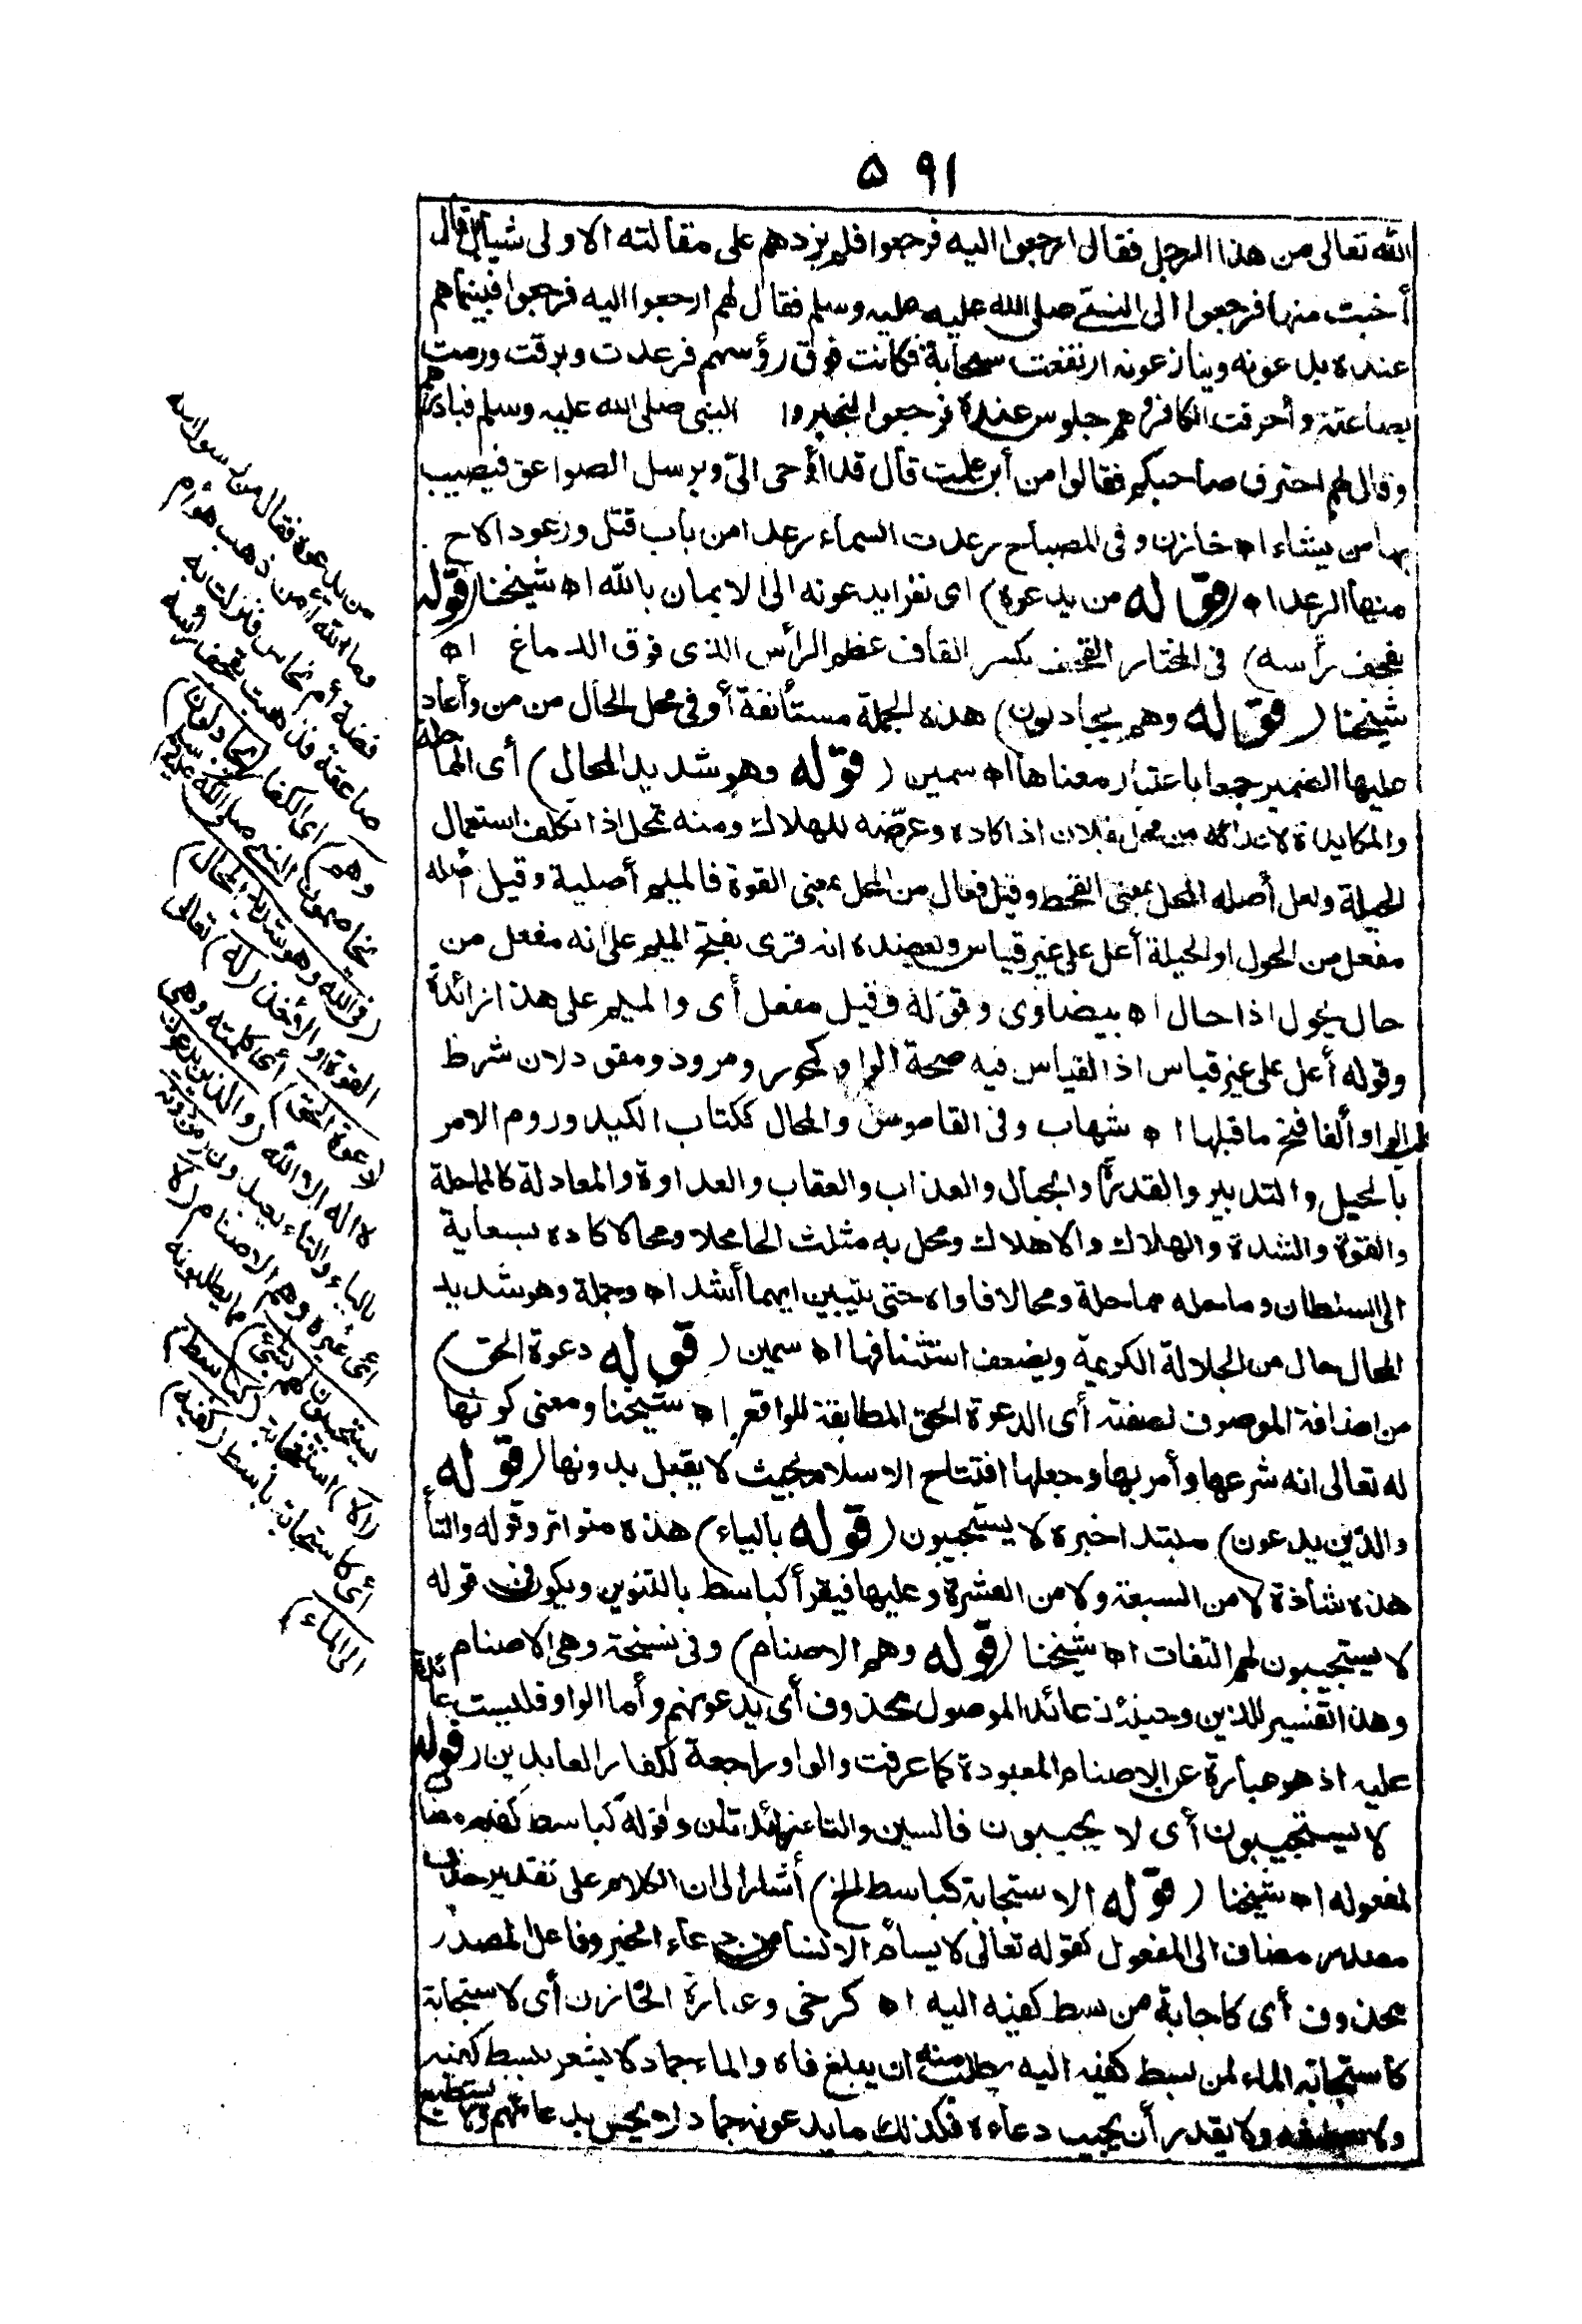 ٥ ٩١
الله تعالى من هذا الرجل فقال ارجعوا اليه فرجعوا فلم يزدهم على مقالته الاولى شيأ بل قال
أخبث منها فرجعوا الى النبي صلى الله عليه عليه وسلم فقال لهم ارجعوا اليه فرجعوا فبينماهم
عنده يدعونه وينازعونه ارتفعت سحابة فكانت فوق رؤسهم فرعدت وبرقت ورمت
بصاعقة وأحرقت الكافر وهم جلوس عنده فرجعوا ليخبروا النبي صلى الله عليه وسلم فبادرهم
وقال لهم احترق صاحبكم فقالوا من أين علمت قال قد أوحى اليّ ويرسل الصواعق فيصيب
بها من يشاء اه خازن وفي المصباح رعدت السماء رعدا من باب قتل ورعودا لاح
منها الرعد اه (قوله من يدعوه) اى نفرا يدعونه الى الايمان بالله اه شيخنا (قوله
بقحف رأسه) في المختار القحف بكسر القاف عظم الرأس الذى فوق الدماغ اه
شيخنا (قوله وهم يجادلون) هذه الجملة مستأنفة أو في محل الحال من من وأعاد
عليها الضمير جمعا باعتبار معناها اه سمين (قوله وهو شديد المحال) أى المماحلة
والمكايدة لاعدائه من محل بفلان اذا كاده وعرّضه للهلاك ومنه تمحل اذا تكلف استعمال
الحيلة ولعل أصله المحل بمعنى القحط وقيل فعال من المحل بمعنى القوة فالميم أصلية وقيل أصله
مفعل من الحول او الحيلة أعل على غير قياس ويعضده انه قرى بفتح الميم على انه مفعل من
حال يحول اذا حال اه بيضاوى وقوله وقيل مفعل أى والميم على هذا زائدة
وقوله أعل على غير قياس اذ القياس فيه صحة الواو كمحور ومرود ومقود لان شرط
قلب الواو ألفا فتح ما قبلها اه شهاب وفى القاموس والمحال ككتاب الكيد وروم الامر
بالحيل والتدبير والقدرة والجدال والعذاب والعقاب والعداوة والمعادلة كالمماحلة
والقوة والشدة والهلاك والاهلاك ومحل به مثلث الحا محلا ومحالا كاده بسعاية
الى السلطان وماحله مماحلة ومحالا قاواه حتى يتبين ايهما أشد اه وجملة وهو شديد
المحال حال من الجلالة الكريمة ويضعف استئنافها اه سمين (قوله دعوة الحق)
من اضافة الموصوف لصفته أى الدعوة الحق المطابقة للواقع اه شيخنا ومعنى كونها
له تعالى انه شرعها وأمر بها وجعلها افتتاح الاسلام بحيث لا يقبل بدونها (قوله
والذين يدعون) مبتدا خبره لا يستجيبون (قوله بالياء) هذه متواترة وقوله والتا
هذه شاذة لا من السبعة ولا من العشرة وعليها فيقرأ كباسط بالتنوين ويكون فى قوله
لا يستجيبون لهم التفات اه شيخنا (قوله وهم الاصنام) وفى نسخة وهى الاصنام
وهذا تفسير للذين وحينئذ عائد الموصول محذوف أى يدعونهم وأما الواو فليست عائدة
عليه اذ هو عبارة عن الاصنام المعبودة كما عرفت والواو راجعة للكفار العابدين (قوله
لا يستجيبون أى لا يجيبون فالسين والتا زائدتان وقوله كباسط كفيه مضاف
لمفعوله اه شيخنا (قوله الا ستجابة كباسط الخ) أشار الى ان الكلام على تقدير حذف
مصدر مضاف الى المفعول كقوله تعالى لا يسأم الانسان من دعاء الخير وفاعل المصدر
محذوف أى كاجابة من بسط كفيه اليه اه كرخى وعبارة الخازن أى لا ستجابة
كاستجابة الماء لمن بسط كفيه اليه يطلب منه أن يبلغ فاه والماء جماد لا يشعر ببسط كفيه
ولا بعطشه ولا يقدر أن يجيب دعاءه فكذلك ما يدعونه جماد لا يحس بدعائهم ولا يستطيع
من يدعوه فقال من رسول الله
وما الله أمن ذهب هو أم
فضة أم نحاس فنزلت به
صاعقة فذهبت بقحف رأسه
(وهم) اى الكفار (يجادلون)
يخاصمون النبي صلى الله عليه وسلم
(فى الله وهو شديد المحال)
القوة او الاخذ (له) تعالى
(دعوة الحق) أى كلمته وهى
لا اله الا الله (والذين يدعون)
بالياء والتاء يعبدون (من دونه)
أى غيره وهم الاصنام (لا
يستجيبون لهم بشئ) مما يطلبونه
(الا) استجابة (كباسط)
أى كاستجابة باسط (كفيه)
الى الماء)